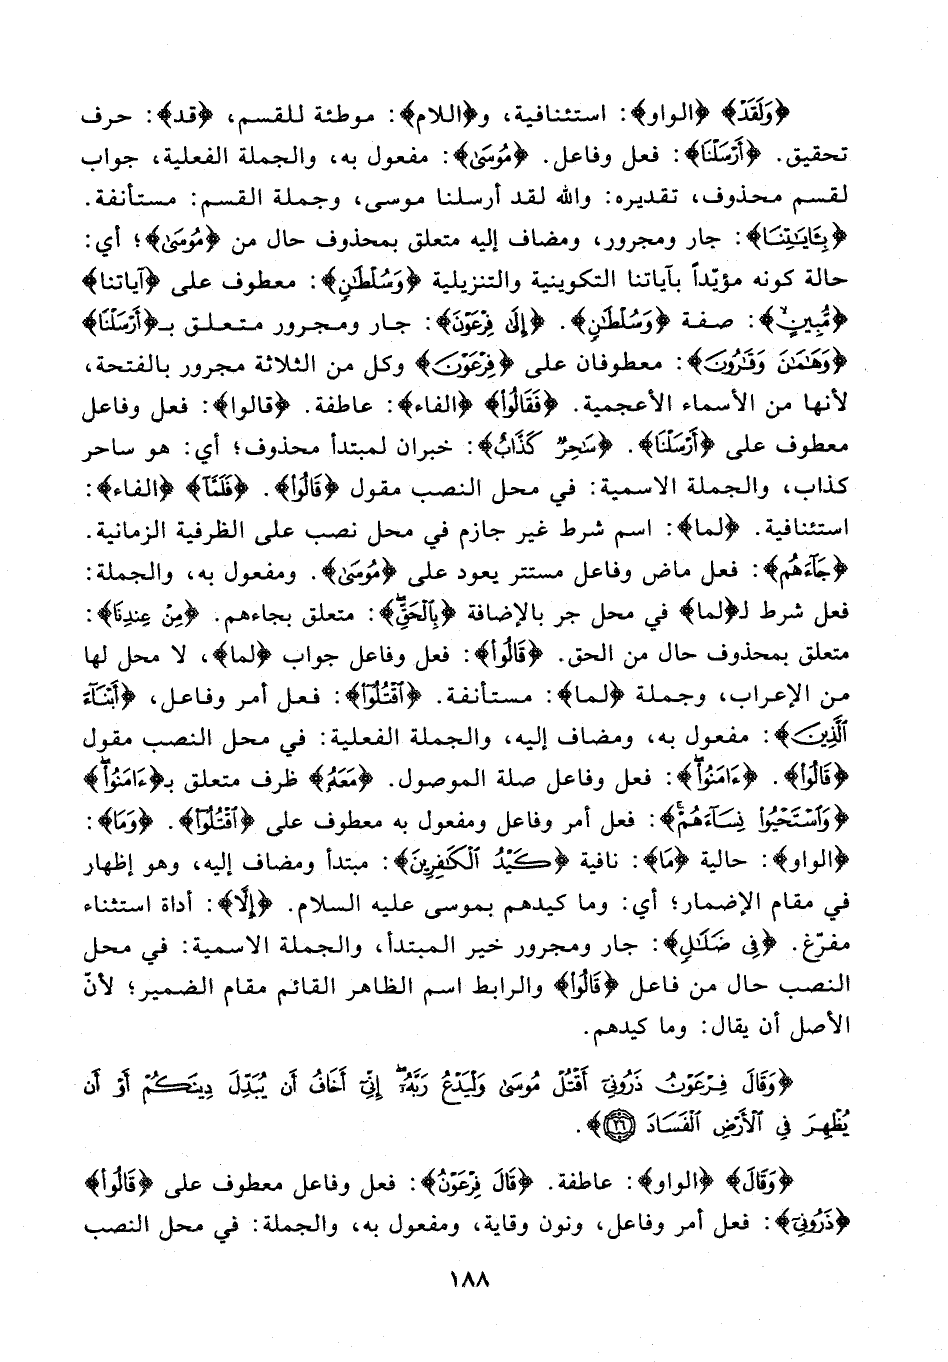 ﴿وَلَقَدْ﴾ ﴿الواو﴾: استئنافية، و﴿اللام﴾: موطئة للقسم، ﴿قد﴾: حرف
تحقيق. ﴿أَرْسَلْنَا﴾: فعل وفاعل. ﴿مُوسَىٰ﴾: مفعول به، والجملة الفعلية، جواب
لقسم محذوف، تقديره: والله لقد أرسلنا موسى، وجملة القسم: مستأنفة.
﴿بِـَٔايَـٰتِنَا﴾: جار ومجرور، ومضاف إليه متعلق بمحذوف حال من ﴿مُوسَىٰ﴾؛ أي:
حالة كونه مؤيّداً بآياتنا التكوينية والتنزيلية ﴿وَسُلْطَـٰنٍ﴾: معطوف على ﴿آياتنا﴾
﴿مُّبِينٍ﴾: صفة ﴿وَسُلْطَـٰنٍ﴾. ﴿إِلَىٰ فِرْعَوْنَ﴾: جار ومجرور متعلق بـ﴿أَرْسَلْنَا﴾
﴿وَهَـٰمَـٰنَ وَقَـٰرُونَ﴾: معطوفان على ﴿فِرْعَوْنَ﴾ وكل من الثلاثة مجرور بالفتحة،
لأنها من الأسماء الأعجمية. ﴿فَقَالُوا۟﴾ ﴿الفاء﴾: عاطفة. ﴿قالوا﴾: فعل وفاعل
معطوف على ﴿أَرْسَلْنَا﴾. ﴿سَـٰحِرٌ كَذَّابٌ﴾: خبران لمبتدأ محذوف؛ أي: هو ساحر
كذاب، والجملة الاسمية: في محل النصب مقول ﴿قَالُوا۟﴾. ﴿فَلَمَّا﴾ ﴿الفاء﴾:
استئنافية. ﴿لما﴾: اسم شرط غير جازم في محل نصب على الظرفية الزمانية.
﴿جَآءَهُم﴾: فعل ماض وفاعل مستتر يعود على ﴿مُوسَىٰ﴾. ومفعول به، والجملة:
فعل شرط لـ﴿لما﴾ في محل جر بالإضافة ﴿بِٱلْحَقِّ﴾: متعلق بجاءهم. ﴿مِنْ عِندِنَا﴾:
متعلق بمحذوف حال من الحق. ﴿قَالُوا۟﴾: فعل وفاعل جواب ﴿لما﴾، لا محل لها
من الإعراب، وجملة ﴿لما﴾: مستأنفة. ﴿ٱقْتُلُوٓا۟﴾: فعل أمر وفاعل، ﴿أَبْنَآءَ
ٱلَّذِينَ﴾: مفعول به، ومضاف إليه، والجملة الفعلية: في محل النصب مقول
﴿قَالُوا۟﴾. ﴿ءَامَنُوا۟﴾: فعل وفاعل صلة الموصول. ﴿مَعَهُ﴾ ظرف متعلق بـ﴿ءَامَنُوا۟﴾
﴿وَٱسْتَحْيُوا۟ نِسَآءَهُمْ﴾: فعل أمر وفاعل ومفعول به معطوف على ﴿ٱقْتُلُوٓا۟﴾. ﴿وَمَا﴾:
﴿الواو﴾: حالية ﴿مَا﴾: نافية ﴿كَيْدُ ٱلْكَـٰفِرِينَ﴾: مبتدأ ومضاف إليه، وهو إظهار
في مقام الإضمار؛ أي: وما كيدهم بموسى عليه السلام. ﴿إِلَّا﴾: أداة استثناء
مفرّغ. ﴿فِى ضَلَـٰلٍ﴾: جار ومجرور خبر المبتدأ، والجملة الاسمية: في محل
النصب حال من فاعل ﴿قَالُوا۟﴾ والرابط اسم الظاهر القائم مقام الضمير؛ لأنّ
الأصل أن يقال: وما كيدهم.
﴿وَقَالَ فِرْعَوْنُ ذَرُونِىٓ أَقْتُلْ مُوسَىٰ وَلْيَدْعُ رَبَّهُۥٓ إِنِّىٓ أَخَافُ أَن يُبَدِّلَ دِينَكُمْ أَوْ أَن
يُظْهِرَ فِى ٱلْأَرْضِ ٱلْفَسَادَ ٢٦﴾.
﴿وَقَالَ﴾ ﴿الواو﴾: عاطفة. ﴿قَالَ فِرْعَوْنُ﴾: فعل وفاعل معطوف على ﴿قَالُوا۟﴾
﴿ذَرُونِىٓ﴾: فعل أمر وفاعل، ونون وقاية، ومفعول به، والجملة: في محل النصب
١٨٨